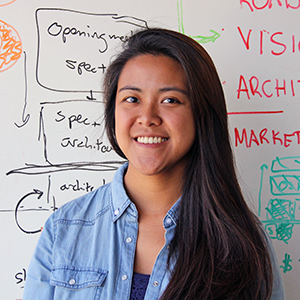 Opening meet
spec +
spec +
archite
archite
ROAD
VISI
ARCHIT
MARKET
$